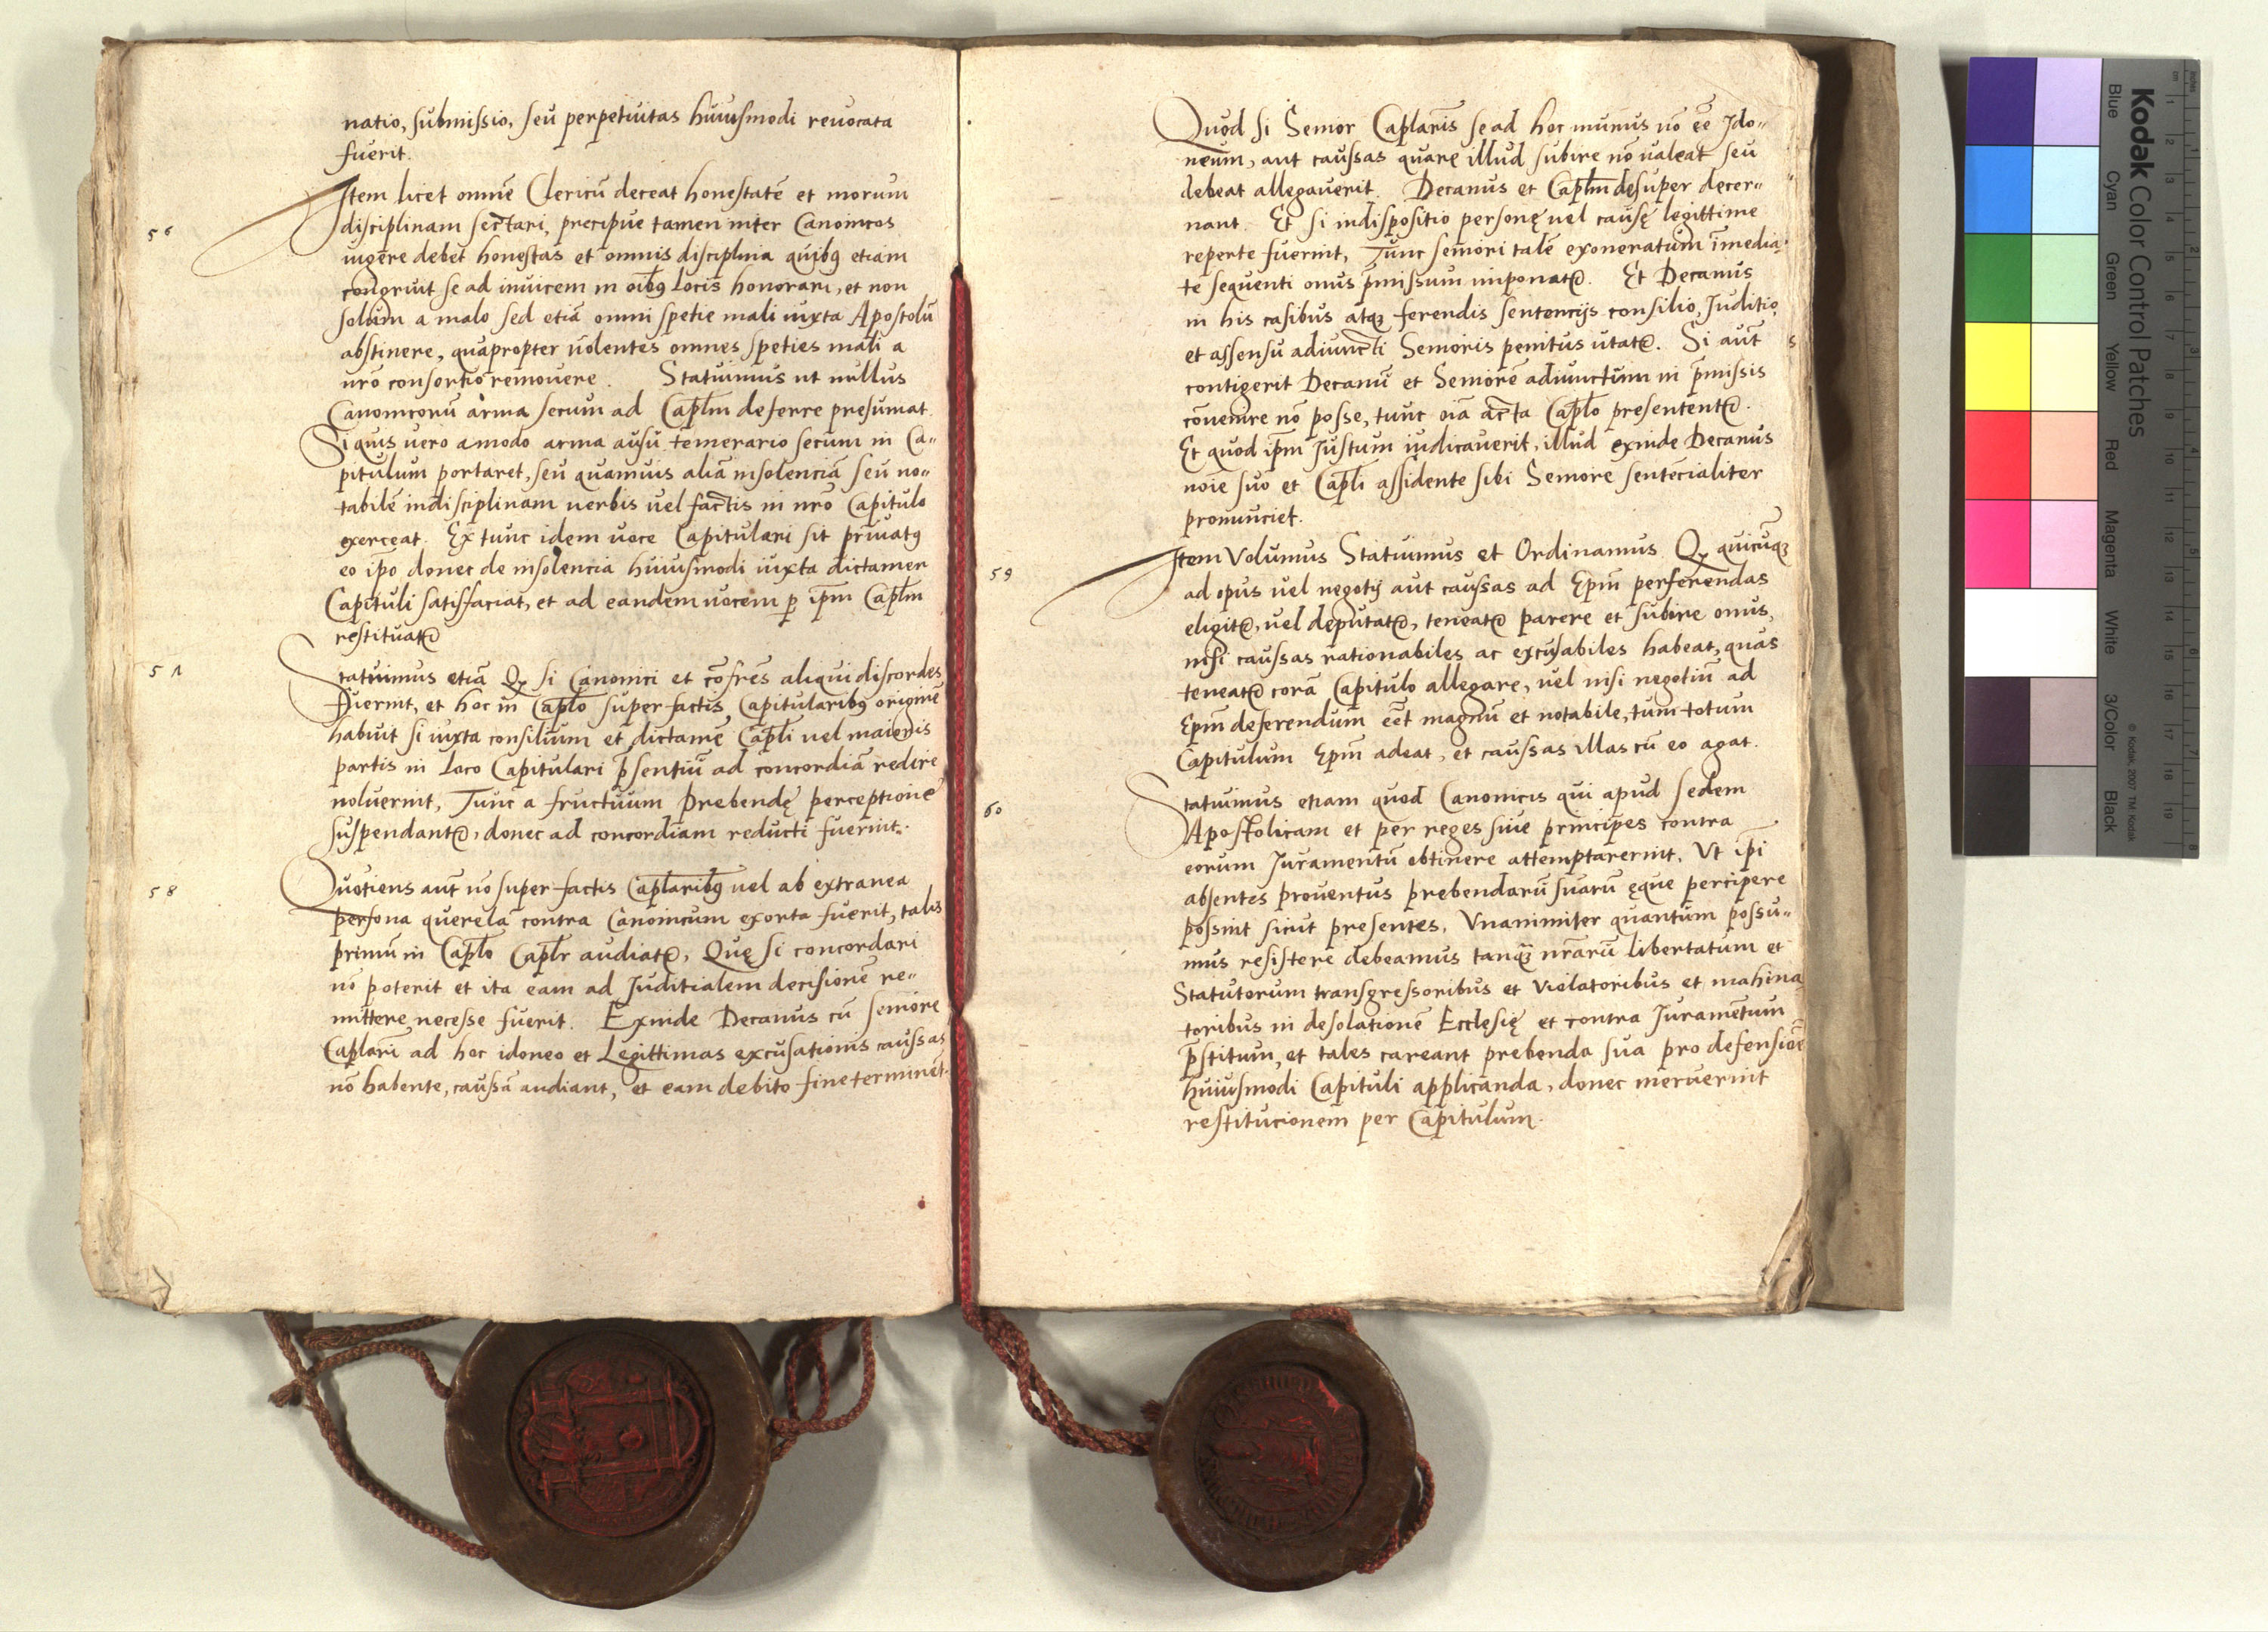 natio, submissio, seu perpetuitas huiusmodi reuocata
fuerit.
56
Item licet omnē Clericū deceat honestatē et morum
disciplinam sectari, precipue tamen inter Canonicos
uigere debet honestas et omnis disciplina quibꝯ etiam
congruit se ad inuicem in oībꝯ locis honorari, et non
solum a malo sed etiā omni spetie mali iuxta Apostolū
abstinere, quapropter uolentes omnes speties mali a
nr̄o consortio remouere. Statuimus ut nullus
Canonicorū arma secum ad Caplm̄ deferre presumat.
Si quis uero amodo arma ausu temerario secum in Ca„
pitulum portaret, seu quamuis aliā insolenciā seu no„
tabilē indisciplinam uerbis uel factis in nr̄o Capitulo
exerceat. Ex tunc idem uoce Capitulari sit priuatꝯ
eo ip̄o donec de insolencia huiusmodi iuxta dictamen
Capituli satisfaciat, et ad eandem uocem ꝑ ip̄m Caplm̄
restituatr̄
57
Statuimus etiā Qꝫ si Canonici et cōfrēs aliqui discordes
fuerint, et hoc in Caplo̅ super factis Capitularibꝯ originē
habuit si iuxta consilium et dictamē Capli̅ uel maioris
partis in loco Capitulari p̄sentiū ad concordiā redire
noluerint, Tunc a fructuum prebendę perceptione
suspendantr̄, donec ad concordiam reducti fuerint.
58
Quotiens aut̄ nō super factis Caplaribꝯ uel ab extranea
persona querela contra Canonicum exorta fuerit, talis
primū in Caplo̅ Caplr̅ audiatr̄, Quę si concordari
nō poterit et ita eam ad Juditialem decisionē re„
mittere necesse fuerit. Exinde Decanus cū seniore
Caplari̅ ad hoc idoneo et Legittimas excusationis caussas
nō habente, caussā audiant, et eam debito fine terminēt.
Quod si Senior Caplaris̅ se ad hoc munus nō eē Ido„
neum, aut caussas quare illud subire nō ualeat seu
debeat allegauerit. Decanus et Caplm̄ desuper decer„
nant. Et si indispositio personę uel causę legittime
reperte fuerint, Tunc seniori talē exoneratum īmedia„
te sequenti onus p̄missum imponatr̄. Et Decanus
in his casibus atqꝫ ferendis sentencijs consilio, Juditio,
et assensu adiuncti Senioris penitus utatr̄. Si aut̄
contigerit Decanū et Seniorē adiunctum in p̄missis
cōuenire nō posse, tunc oīa acta Caplo̅ presententr̄.
Et quod ip̄m Justum iudicauerit, illud exinde Decanus
noīe suo et Capli̅ assidente sibi Seniore sentēcialiter
pronunciet.
59
Item Volumus Statuimus et Ordinamus Qꝫ quicūqꝫ
ad opus uel negotij aut caussas ad Ep̄m perferendas
eligitr̄, uel deputatr̄, teneatr̄ parere et subire onus,
nisi caussas rationabiles ac excusabiles habeat, quas
teneatr̄ corā Capitulo allegare, uel nisi negotiū ad
Ep̄m deferendum eēt magnū et notabile, tum totum
Capitulum Ep̄m adeat, et caussas illas cū eo agat.
60
Statuimus etiam quod Canonicis qui apud sedem
Apostolicam et per reges siue principes contra
eorum Juramentū obtinere attemptarerint, Vt ip̄i
absentes prouentus prebendarū suarū ęque percipere
possint sicut presentes. Vnanimiter quantum possu„
mus resistere debeamus tanqꝫ nr̄arū libertatum et
Statutorum transgressoribus et Violatoribus et mahina
toribus in desolationē Ecclesię et contra Juramētum
p̄stitum, et tales careant prebenda sua pro defensiōē
huiusmodi Capituli applicanda, donec meruerint
restitucionem per Capitulum.
Kodak Color Control Patches
Blue Cyan Green Yellow Red Magenta White 3/Color Black
© Kodak, 2007 TM: Kodak